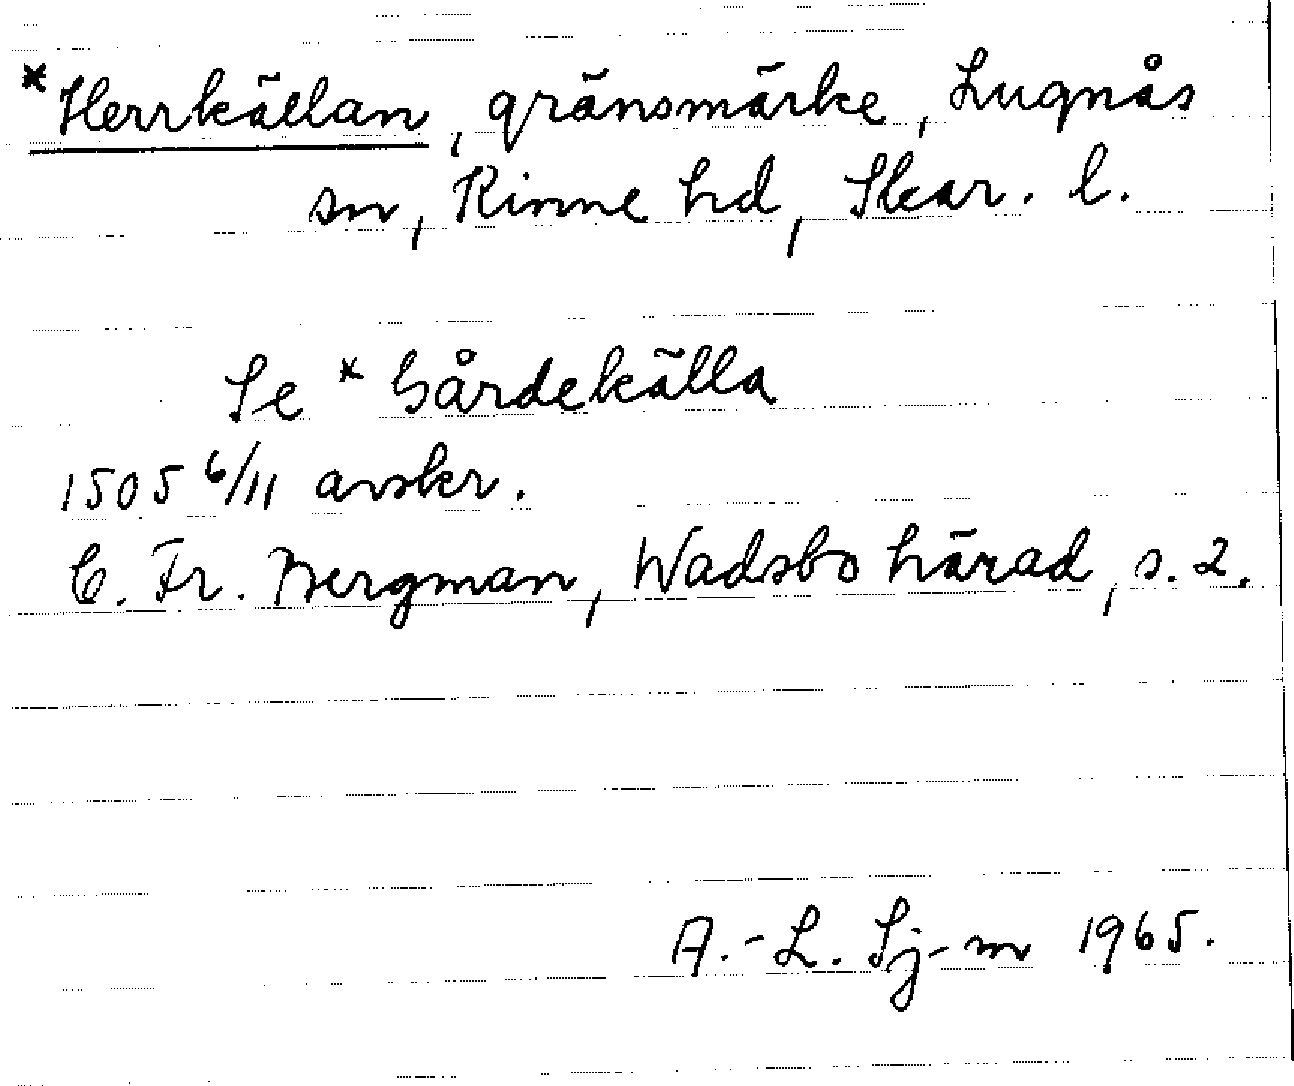 *Herrkällan, gränsmärke, Lugnås
sn, Kinne hd, Skar. l.
Se * Gårdekälla
1505 6/11 avskr.
C. Fr. Bergman, Wadsbo härad, s. 2.
A.-L. Sj-m 1965.